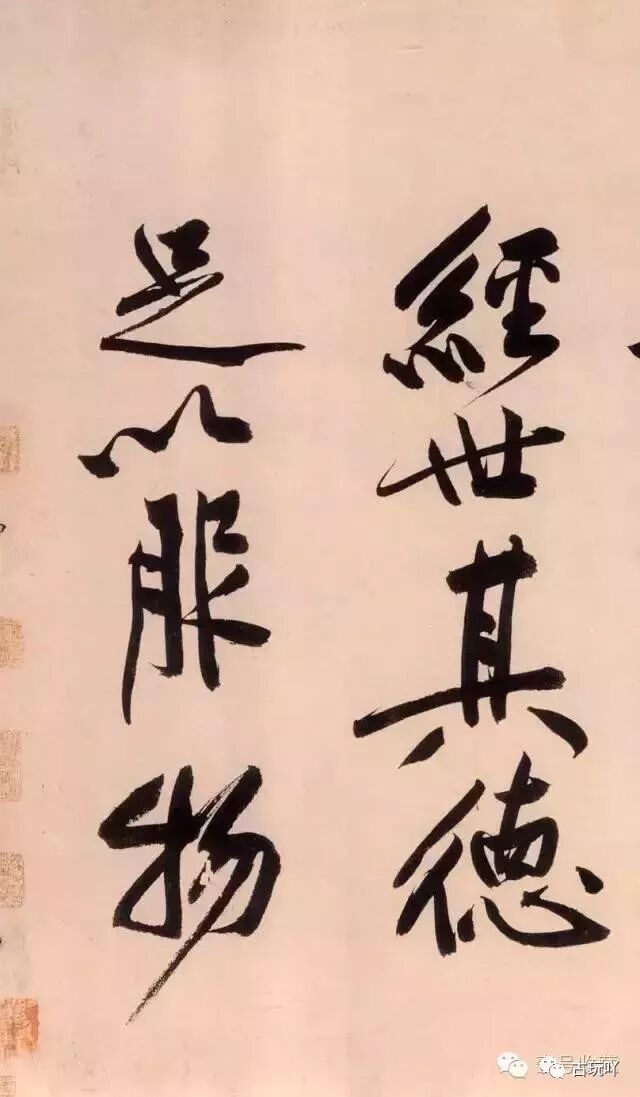 經世其德
足以服物
古玩吖